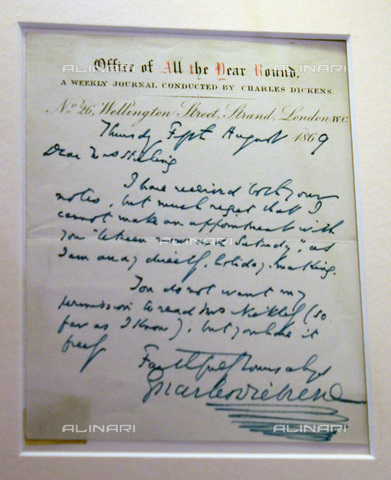 Office of All the Year Round.
A WEEKLY JOURNAL CONDUCTED BY CHARLES DICKENS.
No. 26, Wellington Street, Strand, London, W.C.
Thursday August 1869
Dear Mrs
I have received both your
notes, but much regret that I
cannot make an appointment with
you "between now and Saturday", as
I am away directly, holiday making.
You do not want my
permission to read Mrs Nickleby (so
far as I know), but you have it
freely
Faithfully Yours always
Charles Dickens
ALINARI
ALINARI
ALINARI
ALINARI
ALINARI
ALINARI